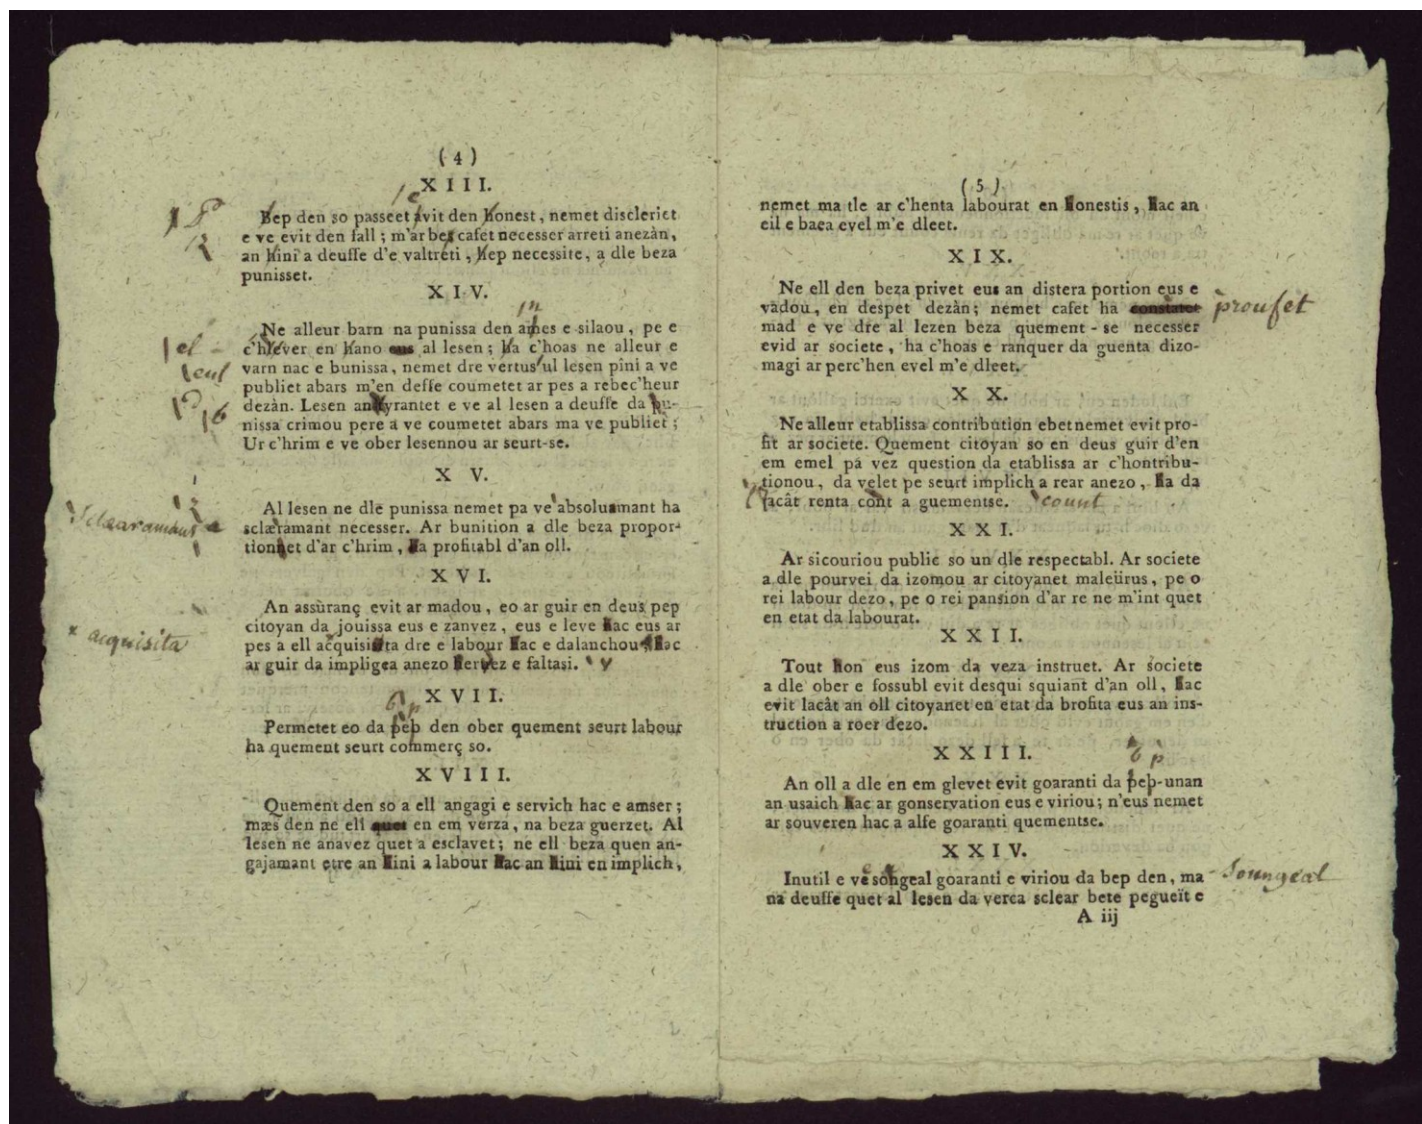 ( 4 )
XIII.
Hep den so passeet evit den honest, nemet discleriet
e ve evit den fall ; m'ar bez cafet necesser arreti anezàn,
an hini a deusse d'e valtreti, hep necessite, a dle beza
punisset.
XIV.
Ne alleur barn na punissa den ames e silaou, pe e
c'hlever en hano eus al lesen ; ha c'hoas ne alleur e
varn nac e bunissa, nemet dre vertus ul lesen pini a ve
publiet abars m'en desse coumetet ar pes a rebec'heur
dezàn. Lesen an tyrantet e ve al lesen a deusse da pu-
nissa crimou pere a ve coumetet abars ma ve publiet ;
Ur c'hrim e ve ober lesennou ar seurt-se.
XV.
Al lesen ne dle punissa nemet pa ve absoluamant ha
sclæramant necesser. Ar bunition a dle beza propor-
tionnet d'ar c'hrim, ha profitabl d'an oll.
XVI.
An assùranç evit ar madou, eo ar guir en deus pep
citoyan da jouissa eus e zanvez, eus e leve hac eus ar
pes a ell acquisita dre e labour hac e dalanchou, hac
ar guir da impligea anezo hervez e faltasi.
XVII.
Permetet eo da pep den ober quement seurt labour
ha quement seurt commerç so.
XVIII.
Quement den so a ell angagi e servich hac e amser ;
mæs den ne ell quet en em verza, na beza guerzet. Al
lesen ne anavez quet a esclavet ; ne ell beza quen an-
gajamant etre an hini a labour hac an hini en implich,
P
el
eul
P
b
Sclaeramant
acquisita
b p
( 5 )
nemet ma tle ar c'henta labourat en honestis, hac an
eil e baea evel m'e dleet.
XIX.
Ne ell den beza privet eus an distera portion eus e
vadou, en despet dezàn ; nemet cafet ha constatet
mad e ve dre al lezen beza quement-se necesser
evid ar societe, ha c'hoas e ranquer da guenta dizo-
magi ar perc'hen evel m'e dleet.
XX.
Ne alleur etablissa contribution ebet nemet evit pro-
fit ar societe. Quement citoyan so en deus guir d'en
em emel pa vez question da etablissa ar c'hontribu-
tionou, da velet pe seurt implich a rear anezo, ha da
lacât renta cont a guementse.
XXI.
Ar sicouriou public so un dle respectabl. Ar societe
a dle pourvei da izomou ar citoyanet maleürus, pe o
rei labour dezo, pe o rei pansion d'ar re ne m'int quet
en etat da labourat.
XXII.
Tout hon eus izom da veza instruet. Ar societe
a dle ober e fossubl evit desqui squiant d'an oll, hac
evit lacât an oll citoyanet en etat da brofita eus an ins-
truction a roer dezo.
XXIII.
An oll a dle en em glevet evit goaranti da pep-unan
an usaich hac ar gonservation eus e viriou ; n'eus nemet
ar souveren hac a alfe goaranti quementse.
XXIV.
Inutil e ve songeal goaranti e viriou da bep den, ma
na deusse quet al lesen da verca sclear bete pegueït e
A iij
proufet
count
b p
Soungeal